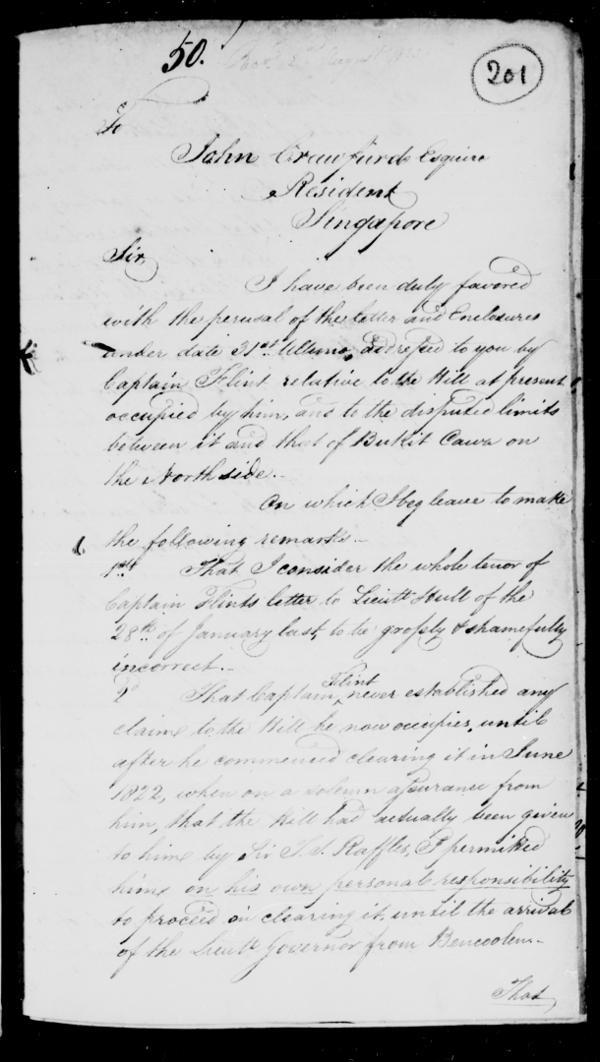 50.
201
To
John Crawfurd Esquire
Resident
Singapore
Sir,
I have been duly favored
with the perusal of the letter and Enclosures
under date 31st. Ultimo, addressed to you by
Captain Flint relative to the Hill at present
occupied by him, and to the disputed limits
between it and that of Bukit Cawa on
the North side.-
On which I beg leave to make
the following remarks.-
1st. That I consider the whole tenor of
Captain Flints letter to Lieutt. Hull of the
28th. of January last, to be grossly & shamefully
incorrect.-
2d That Captain Flint never established any
claim to the Hill he now occupies, until
after he commenced clearing it in June
1822, when on a solemn assurance from
him, that the Hill had actually been given
to him by Sir T. S. Raffles, I permitted
him on his own personal responsibility
to proceed in clearing it until the arrival
of the Lieutt. Governor from Bencoolen.-
That